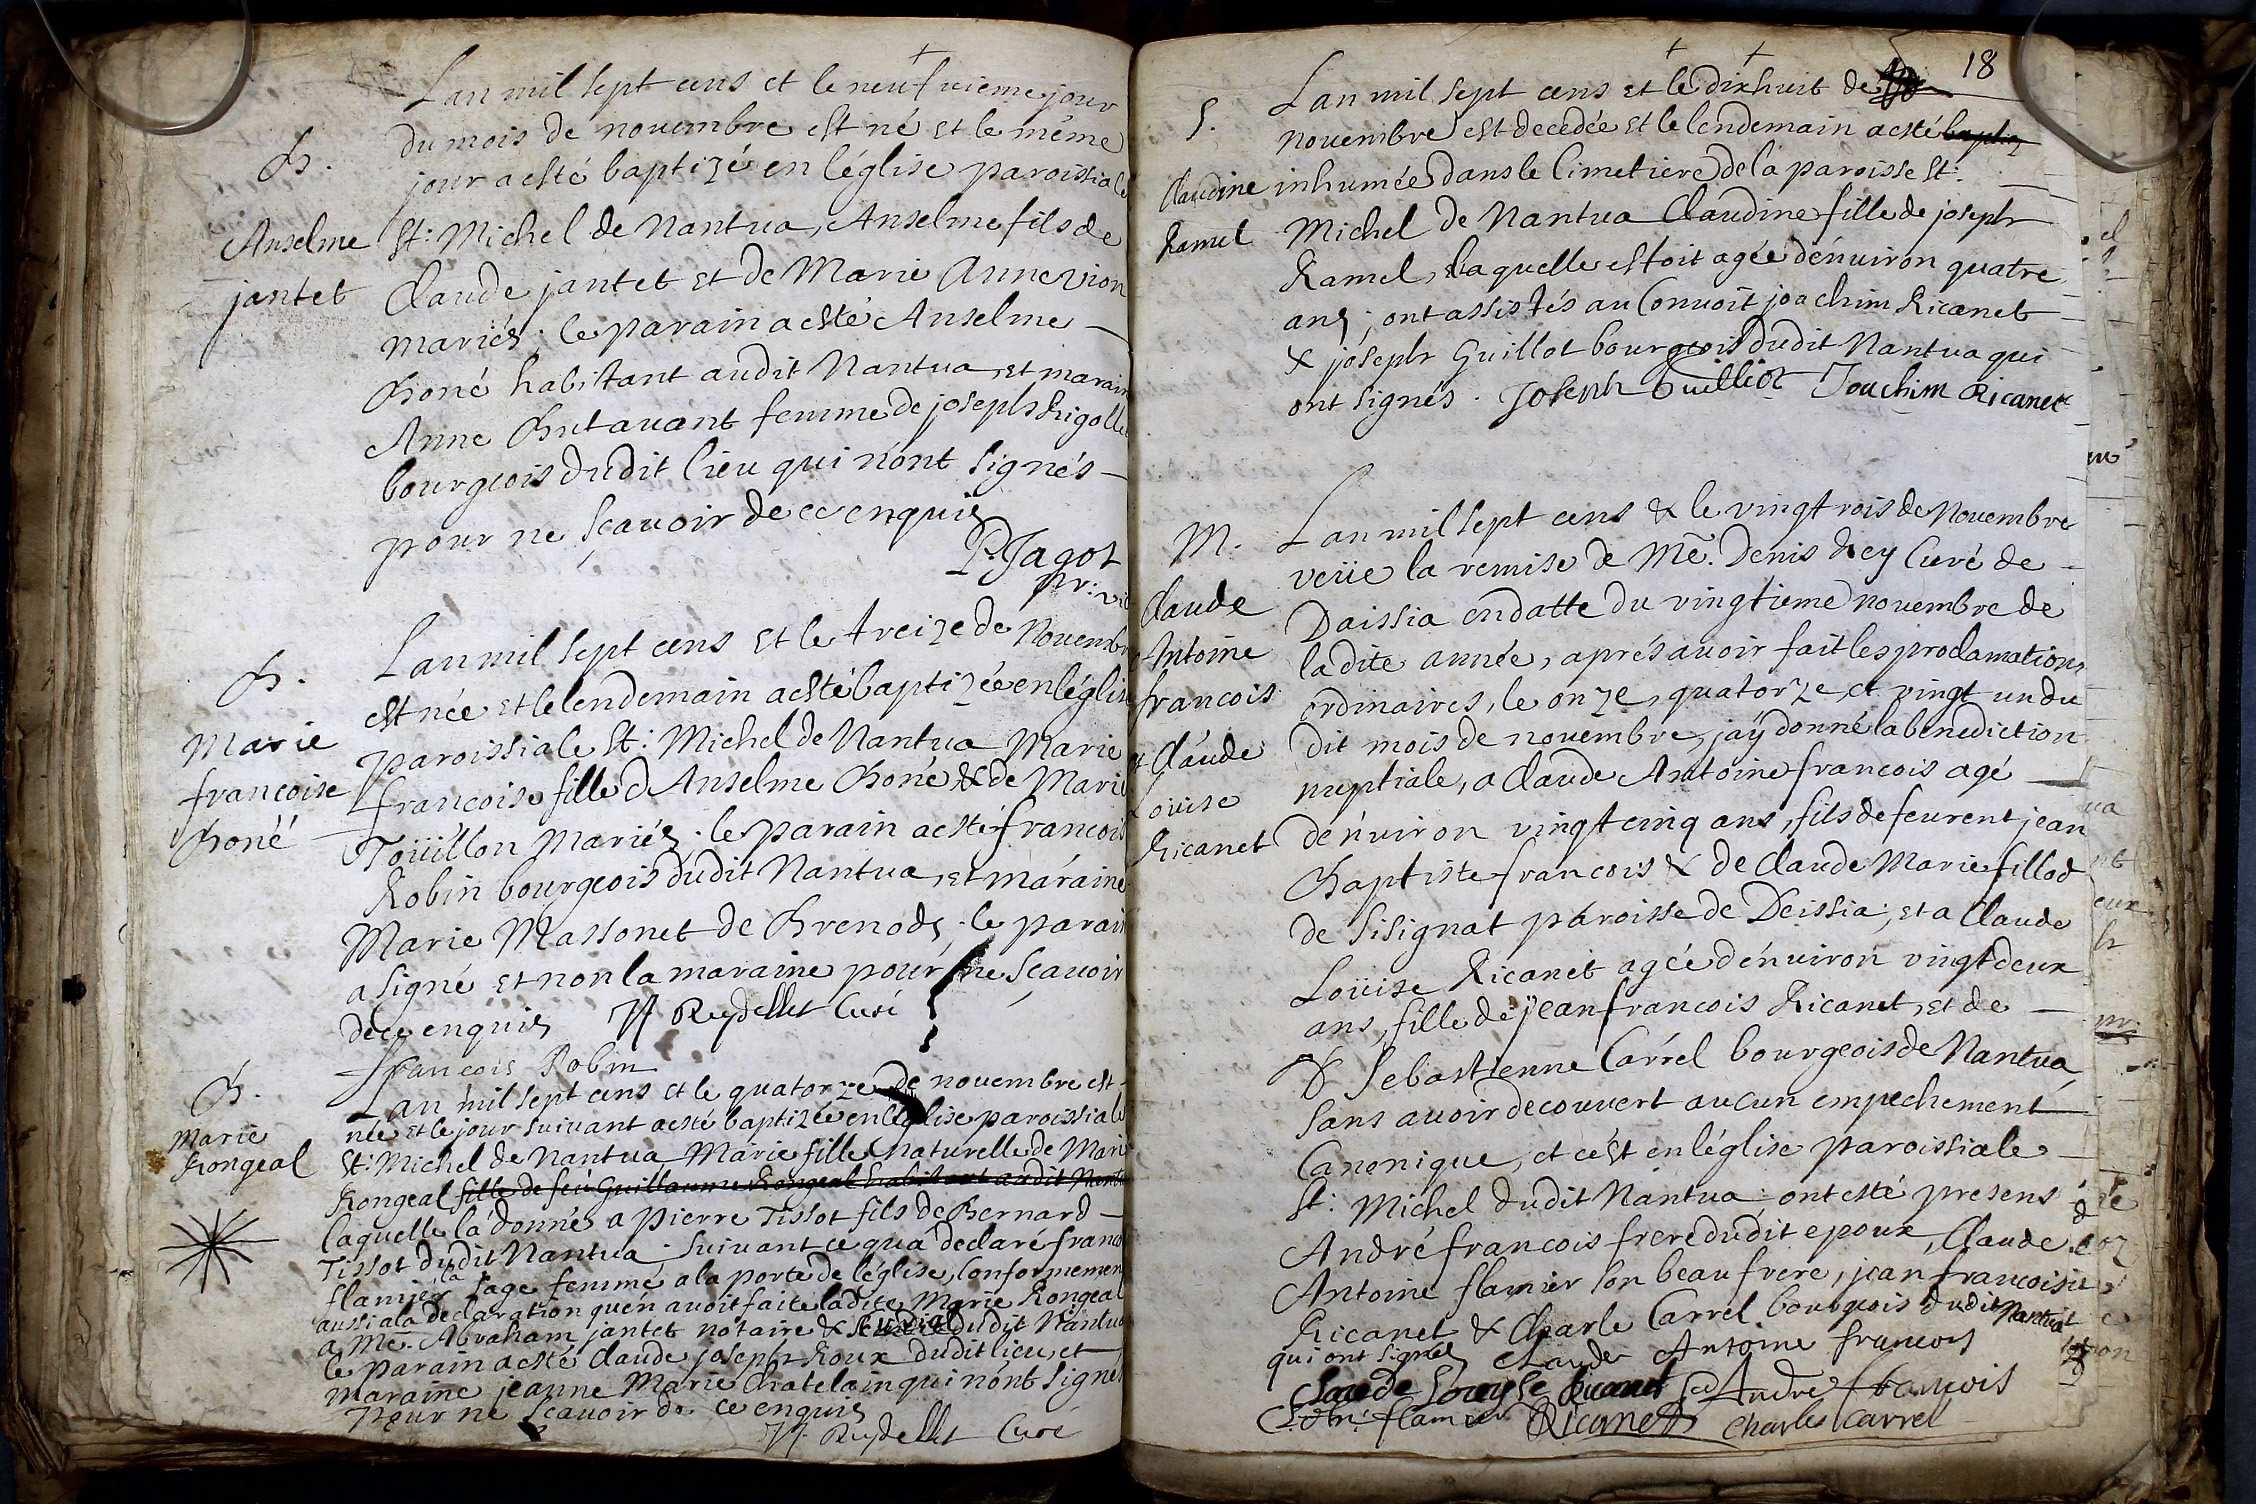 Lan mil sept cens et le neufvieme jour
du mois de novembre est né et le méme
jour a esté baptizé en léglise paroissiale
B.
Anselme
jantet
St: Michel de Nantua, Anselme fils de
Claude jantet et de Marie Anne vion
mariés; le parain a esté Anselme
Boné habitant audit Nantua, et marain
Anne Butavant femme de joseph Rigolle
bourgeois dudit lieu qui n'ont signés
pour ne sçavoir de ce enquis
P. Jagot
pr: vic
B.
Marie
francoise
Boné
Lan mil sept cens et le treize de Novembre
est née et le lendemain a esté baptizée en léglise
paroissiale St: Michel de Nantua Marie
francoise fille d'Anselme Boné & de Marie
Toüillon Mariés; le parain a esté francois
Robin bourgeois dudit Nantua, et maraine
Marie Massonet de Brenods. le parain
a signé et non la maraine pour ne sçavoir
de ce enquis Rydellet Curé
francois Robin
B.
Marie
Rongeal
Lan mil sept cens et le quatorze de novembre est
née et le jour suivant a esté baptizée en léglise paroissiale
St: Michel de Nantua Marie fille naturelle de Marie
Rongeal fille de feu Guillaume Rongeal habitant audit Nantua
laquelle la donné a pierre Tissot fils de Bernard
Tissot dudit Nantua suivant ce qua declaré franco
flamier la sage femme a la porte de léglise, conformement
aussi a la declaration quén avoit faite ladite Marie Rongeal
a Me. Abraham jantet notaire & dudit Nantua
le parain a esté Claude joseph Roux dudit lieu, et
maraine jeanne Marie Chatelain qui n'ont signés
pour ne scavoir de ce enquis
Rydellet Curé
18
S.
Claudine
Ramel
Lan mil sept cens et le dixhuit de
novembre est decedée et le lendemain a esté baptiz
inhumée dans le Cimetiere de la paroisse St:
Michel de Nantua Claudine fille de joseph
Ramel, laquelle estoit agée dénviron quatre
ans; ont assistés au Convoit joachim Ricanet
& joseph Guillot bourgeois dudit Nantua qui
ont signés. Joseph Guilliot Jouchim Ricanet
M.
Claude
Antoine
francois
et Claude
Loüise
Ricanet
Lan mil sept cens & le vingt rois de Novembre
veüe la remise de Me. Denis Rey Curé de
Daissia en datte du vingtieme novembre de
ladite année, aprés avoir fait les proclamations
ordinaires, le onze, quatorze, et vingt un du
dit mois de novembre, jaÿ donné la benediction
nuptiale, a Claude Antoine francois agé
dénviron vingt cinq ans, fils de feurent jean
Baptiste francois & de Claude Marie fillod
de Sisignat paroisse de Deissia; et a Claude
Loüise Ricanet agée dénviron vingt deux
ans, fille de jean francois Ricanet, et de
& Sebastienne Carrel bourgeois de Nantua
sans avoir decouvert aucun empechement
Canonique, et cést en léglise paroissiale
St: Michel dudit Nantua: ont esté presens
André francois frere dudit epoux, Claude
Antoine flamier son beau frere, jean francois
Ricanet & Charle Carrel bourgeois dudit Nantua
qui ont signés Claude Antoine francois
Claude Louyse Ricanet André francois
flamier Ricanet Charles Carrel